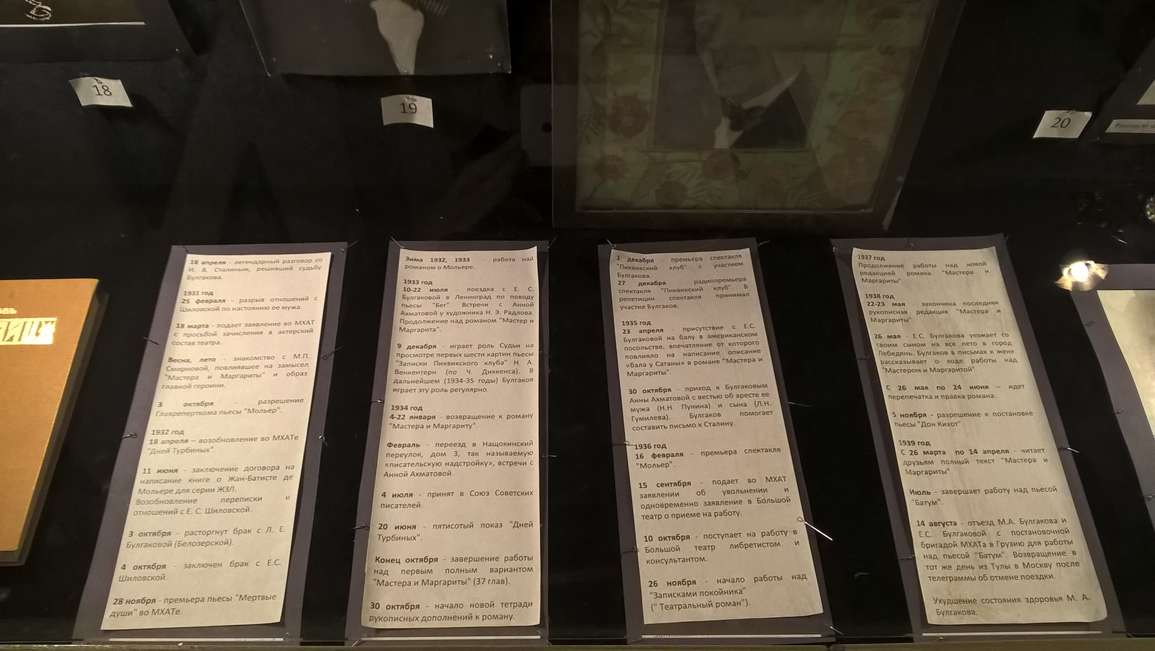 18
19
20
18 апреля - легендарный разговор со
И. В. Сталиным, решивший судьбу
Булгакова.
1931 год
25 февраля - разрыв отношений с
Шиловской по настоянию ее мужа.
18 марта - подает заявление во МХАТ
с просьбой зачисления в актерский
состав театра.
Весна, лето - знакомство с М.П.
Смирновой, повлиявшее на замысел
"Мастера и Маргариты" и образ
главной героини.
3 октября - разрешение
Главреперткома пьесы "Мольер".
1932 год
18 апреля – возобновление во МХАТе
"Дней Турбиных".
11 июня - заключение договора на
написание книги о Жан-Батисте де
Мольере для серии ЖЗЛ.
Возобновление переписки и
отношений с Е. С. Шиловской.
3 октября - расторгнут брак с Л. Е.
Булгаковой (Белозерской).
4 октября - заключен брак с Е.С.
Шиловской.
28 ноября - премьера пьесы "Мертвые
души" во МХАТе.
Зима 1932, 1933 работа над
романом о Мольере.
1933 год
10-22 июля - поездка с Е. С.
Булгаковой в Ленинград по поводу
пьесы "Бег". Встречи с Анной
Ахматовой у художника Н. Э. Радлова.
Продолжение над романом "Мастер и
Маргарита".
9 декабря - играет роль Судьи на
просмотре первых шести картин пьесы
"Записки Пиквикского клуба" Н. А.
Венкентерн (по Ч. Диккенса). В
дальнейшем (1934-35 годы) Булгаков
играет эту роль регулярно.
1934 год
4-22 января - возвращение к роману
"Мастера и Маргариту".
Февраль - переезд в Нащокинский
переулок, дом 3, так называемую
«писательскую надстройку», встречи с
Анной Ахматовой.
4 июля - принят в Союз Советских
писателей.
20 июня - пятисотый показ "Дней
Турбиных".
Конец октября - завершение работы
над первым полным вариантом
"Мастера и Маргариты" (37 глав).
30 октября - начало новой тетради
рукописных дополнений к роману.
1 декабря - премьера спектакля
"Пиквикский клуб" с участием
Булгакова.
27 декабря радиопремьера
спектакля "Пиквикский клуб". В
репетиции спектакля принимал
участие Булгаков.
1935 год
23 апреля - присутствие с Е.С.
Булгаковой на балу в американском
посольстве, впечатление от которого
повлияло на написание описание
«бала у Сатаны» в романе "Мастера и
Маргариты".
30 октября - приход к Булгаковым
Анны Ахматовой с вестью об аресте ее
мужа (Н.Н. Пунина) и сына (Л.Н.
Гумилева). Булгаков помогает
составить письмо к Сталину.
1936 год
16 февраля - премьера спектакля
"Мольер".
15 сентября - подает во МХАТ
заявлении об увольнении и
одновременно заявление в Большой
театр о приеме на работу.
10 октября - поступает на работу в
Большой театр либретистом и
консультантом.
26 ноября - начало работы над
"Записками покойника"
(" Театральный роман").
1937 год
Продолжение работы над новой
редакцией романа "Мастера и
Маргариты"
1938 год
22-23 мая закончена последняя
рукописная редакция "Мастера и
Маргариты".
26 мая - Е.С. Булгакова уезжает со
своим сыном на все лето в город
Лебедянь. Булгаков в письмах к жене
рассказывает о ходе работы над
"Мастером и Маргаритой"
С 26 мая по 24 июня – идет
перепечатка и правка романа.
5 ноября - разрешение к постановке
пьесы "Дон Кихот".
1939 год
С 26 марта по 14 апреля - читает
друзьям полный текст "Мастера и
Маргариты".
Июль - завершает работу над пьесой
"Батум".
14 августа - отъезд М.А. Булгакова и
Е.С. Булгаковой с постановочной
бригадой МХАТа в Грузию для работы
над пьесой "Батум". Возвращение в
тот же день из Тулы в Москву после
телеграммы об отмене поездки.
Ухудшение состояния здоровья М. А.
Булгакова.